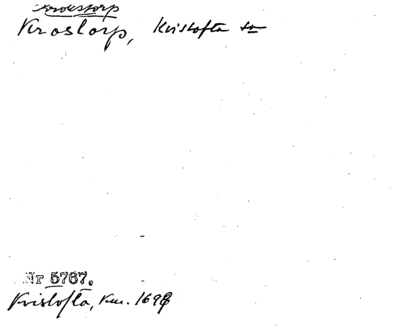 Krokstorp
Krostorp, Kvistofta sn
Nr 5767.
Kvistofta, Km. 1698